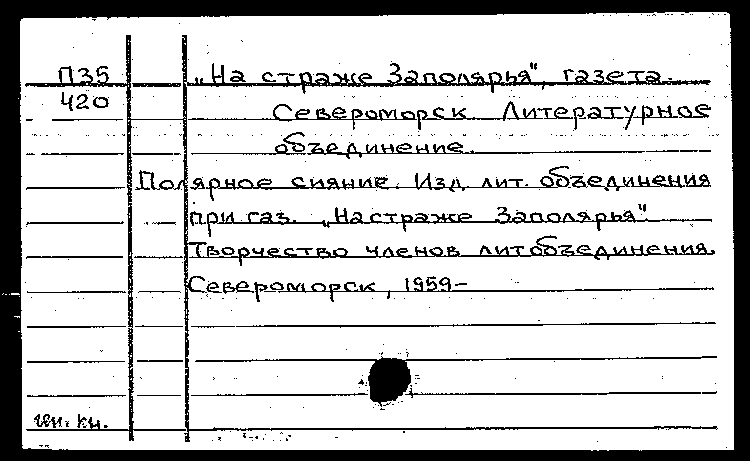 П35 „На страже Заполярья", газета.
420 Североморск Литературное
объединение.
Полярное сияние. Изд. лит. объединения
при газ. „На страже Заполярья"
Творчество членов литобъединения.
Североморск, 1959-